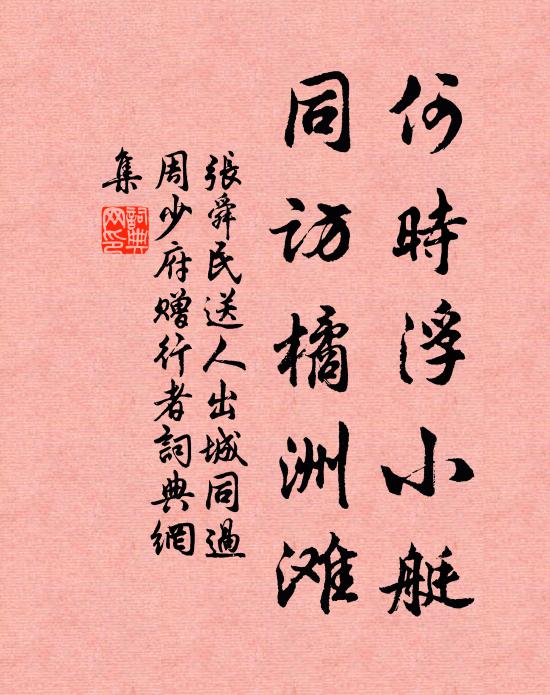 何時浮小艇
同訪橘洲滩
張舜民送人出城同過
周少府赠行者詞典網
集
詞典
网印